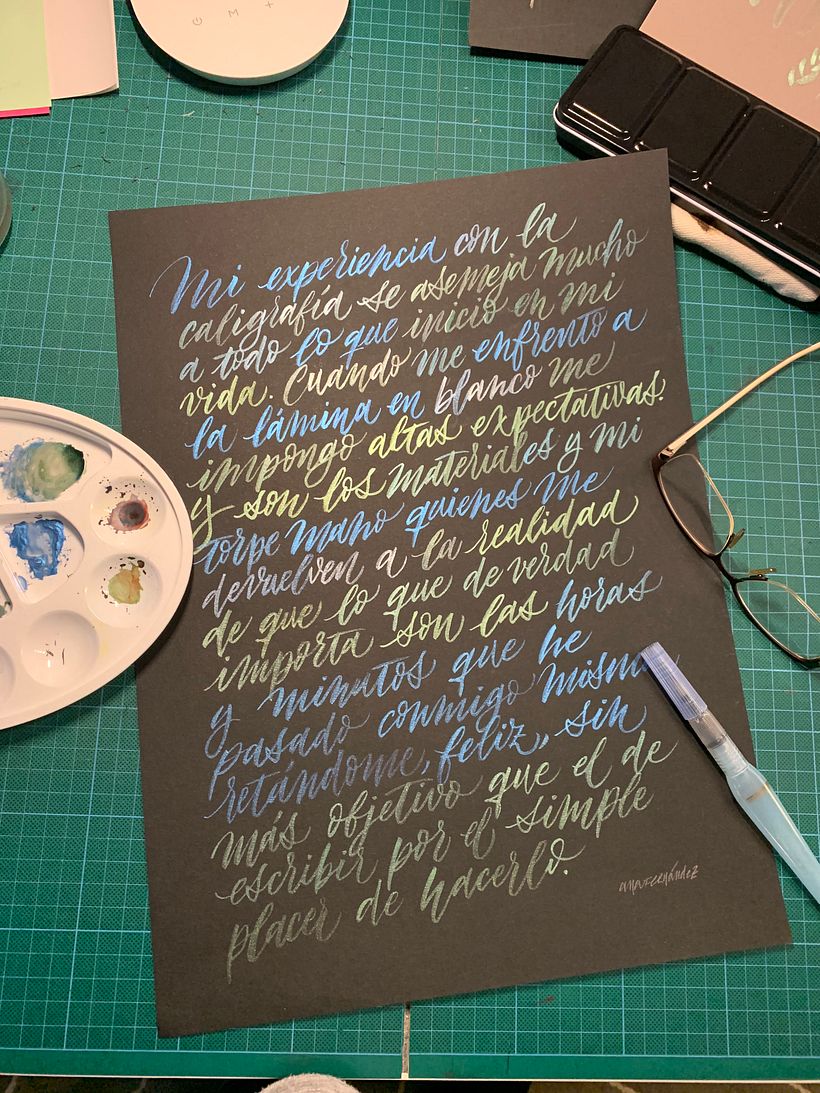 Mi experiencia con la
caligrafía se asemeja mucho
a todo lo que inicio en mi
vida. Cuando me enfrento a
la lámina en blanco me
impongo altas expectativas.
y son los materiales y mi
torpe mano quienes me
devuelven a la realidad
de que lo que de verdad
importa son las horas
y minutos que he
pasado conmigo misma
retándome, feliz, sin
más objetivo que el de
escribir por el simple
placer de hacerlo.
anaFernández
M +